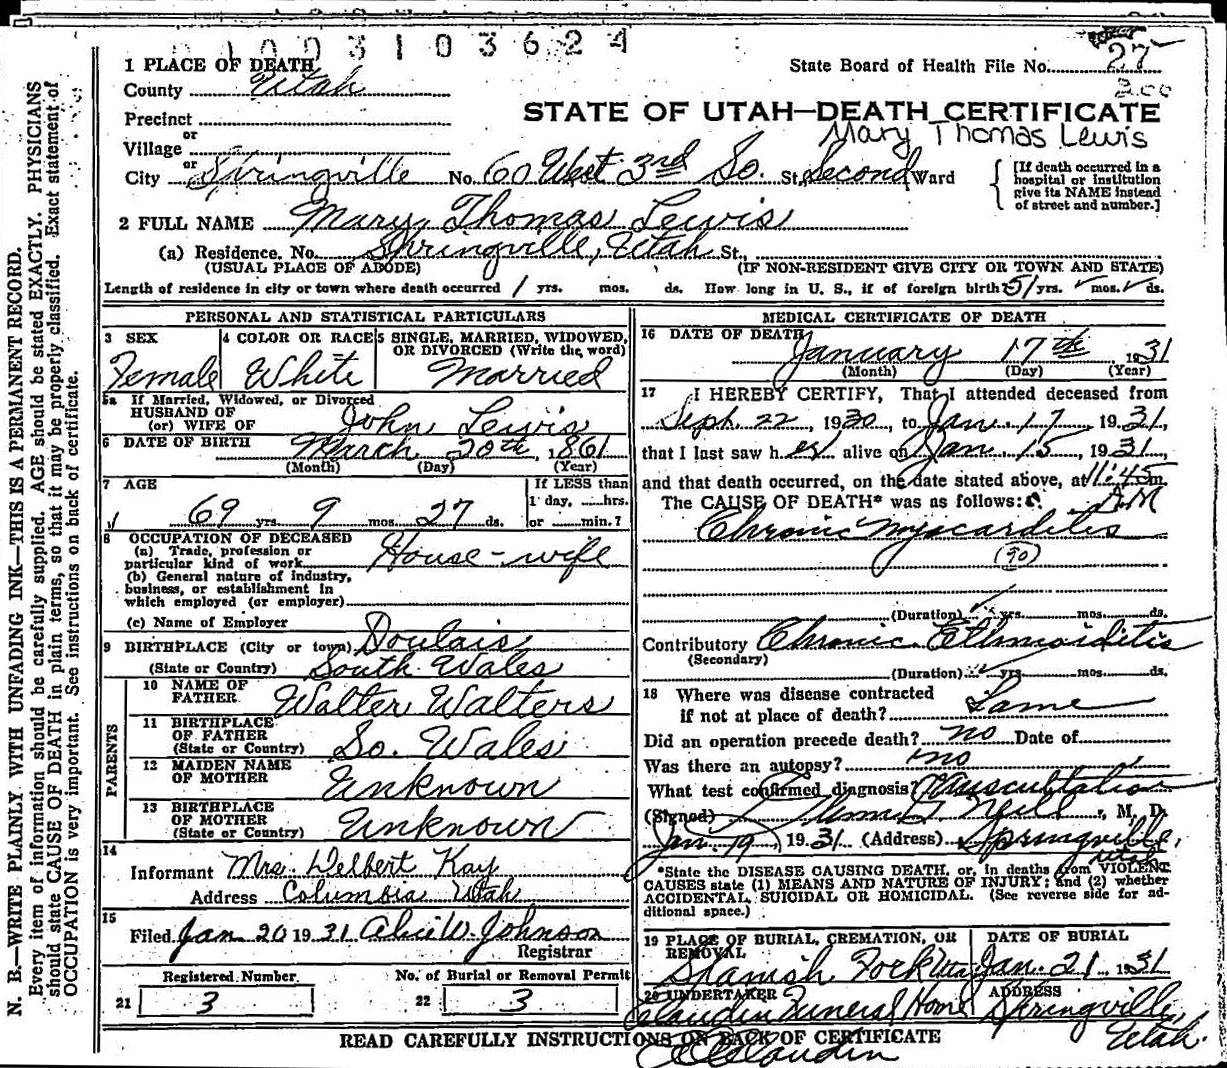 1003103624
1 PLACE OF DEATH
State Board of Health File No. 27
County Utah
200
STATE OF UTAH—DEATH CERTIFICATE
Precinct
or
Mary Thomas Lewis
Village
or
City Springville No. 60 West 3rd So. St. Second Ward
[If death occurred in a hospital or institution give its NAME instead of street and number.]
2 FULL NAME Mary Thomas Lewis
(a) Residence. No. Springville, Utah St.,
(USUAL PLACE OF ABODE) (IF NON-RESIDENT GIVE CITY OR TOWN AND STATE)
Length of residence in city or town where death occurred 1 yrs. mos. ds. How long in U. S., if of foreign birth? 51 yrs. mos. ds.
PERSONAL AND STATISTICAL PARTICULARS
3 SEX Female
4 COLOR OR RACE White
5 SINGLE, MARRIED, WIDOWED, OR DIVORCED (Write the word) Married
5a If Married, Widowed, or Divorced
HUSBAND OF
(or) WIFE OF John Lewis
6 DATE OF BIRTH March 20th, 1861
(Month) (Day) (Year)
7 AGE 69 yrs. 9 mos. 27 ds.
If LESS than
1 day, hrs.
or min.?
8 OCCUPATION OF DECEASED
(a) Trade, profession or
particular kind of work House-wife
(b) General nature of industry,
business, or establishment in
which employed (or employer)
(c) Name of Employer
9 BIRTHPLACE (City or town) Doulais
(State or Country) South Wales
PARENTS
10 NAME OF
FATHER Walter Walters
11 BIRTHPLACE
OF FATHER
(State or Country) So. Wales
12 MAIDEN NAME
OF MOTHER Unknown
13 BIRTHPLACE
OF MOTHER
(State or Country) Unknown
14
Informant Mrs. Delbert Kay
Address Columbia Utah
15
Filed Jan 20 1931 Alice W. Johnson
Registrar
Registered Number
21 3
No. of Burial or Removal Permit
22 3
MEDICAL CERTIFICATE OF DEATH
16 DATE OF DEATH
January 17th, 1931
(Month) (Day) (Year)
17 I HEREBY CERTIFY, That I attended deceased from
Sept. 22, 1930, to Jan. 17, 1931,
that I last saw her alive on Jan. 15, 1931,
and that death occurred, on the date stated above, at 11:45 m.
The CAUSE OF DEATH* was as follows: A.M
Chronic Myocarditis
(90)
(Duration) yrs. mos. ds.
Contributory Chronic Ethmoiditis
(Secondary)
(Duration) yrs. mos. ds.
18 Where was disease contracted
if not at place of death? Same
Did an operation precede death? no Date of
Was there an autopsy? no
What test confirmed diagnosis? Auscultation
(Signed) Neill, M. D.
Jan 19, 1931 (Address) Springville,
Utah
*State the DISEASE CAUSING DEATH, or, in deaths from VIOLENT
CAUSES state (1) MEANS AND NATURE OF INJURY; and (2) whether
ACCIDENTAL, SUICIDAL OR HOMICIDAL. (See reverse side for ad-
ditional space.)
19 PLACE OF BURIAL, CREMATION, OR
REMOVAL
Spanish Fork Utah
DATE OF BURIAL
Jan. 21, 1931
20 UNDERTAKER
Claudin Funeral Home
ADDRESS
Springville,
Utah.
READ CAREFULLY INSTRUCTIONS ON BACK OF CERTIFICATE
Claudin
N. B.—WRITE PLAINLY WITH UNFADING INK—THIS IS A PERMANENT RECORD.
Every item of information should be carefully supplied. AGE should be stated EXACTLY. PHYSICIANS
should state CAUSE OF DEATH in plain terms, so that it may be properly classified. Exact statement of
OCCUPATION is very important. See instructions on back of certificate.